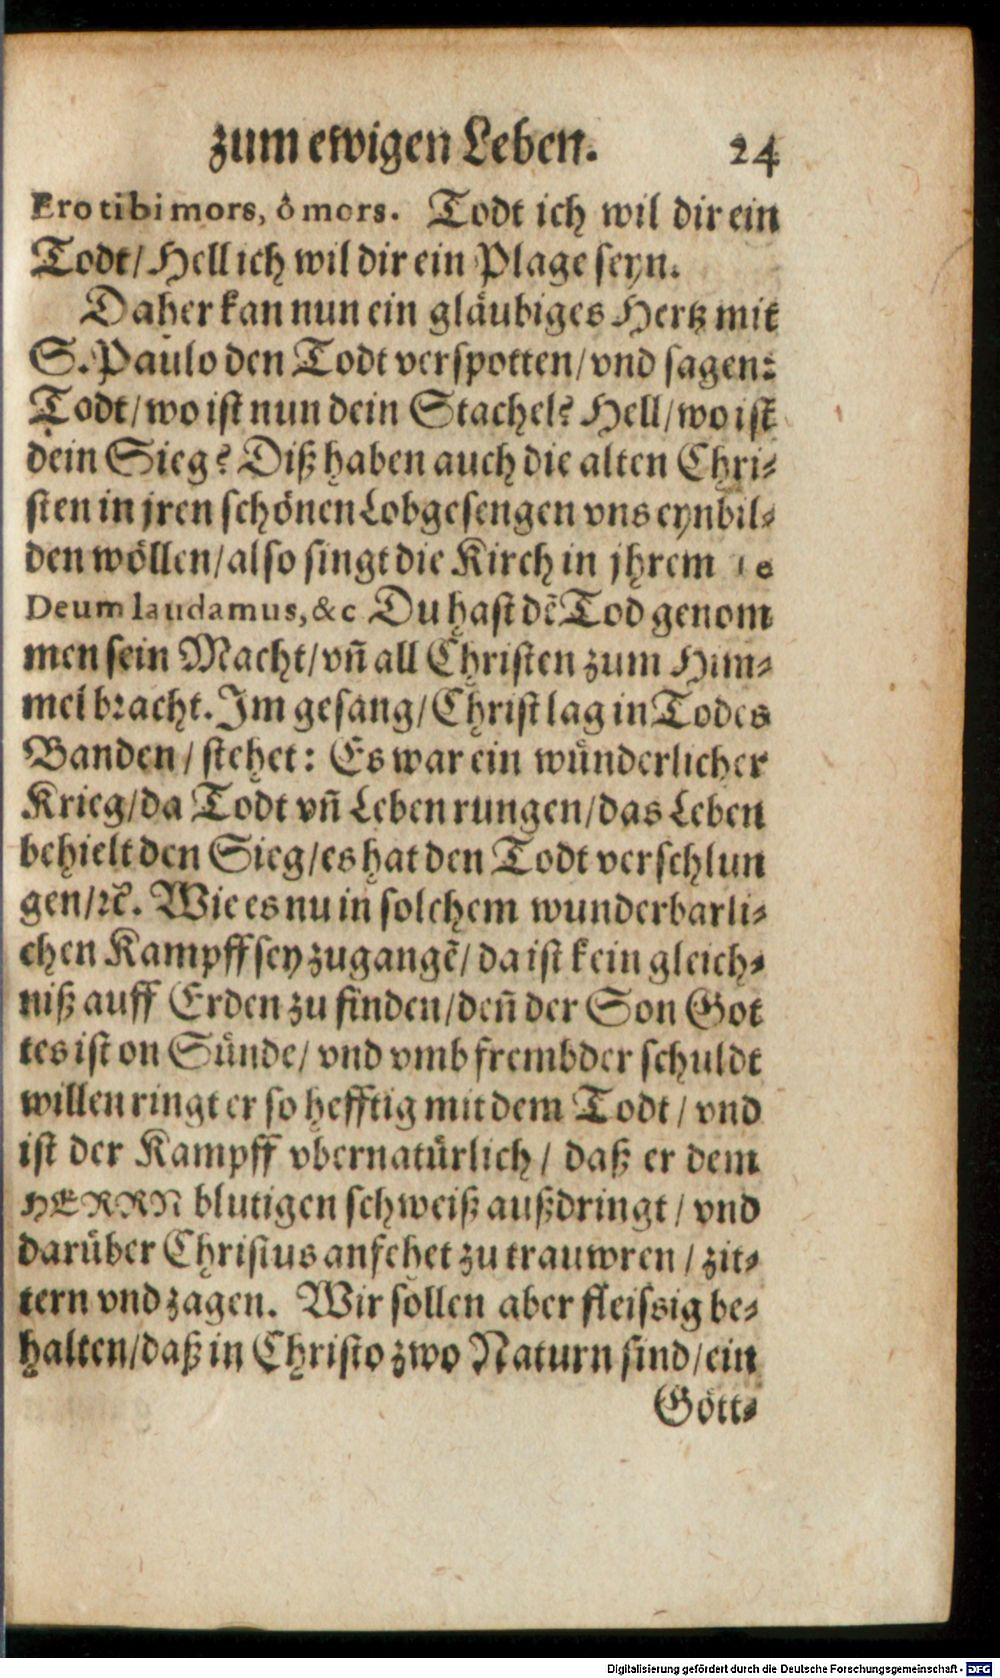 zum ewigen Leben. 24
Ero tibi mors, ô mors. Todt ich wil dir ein
Todt/ Hell ich wil dir ein Plage seyn.
Daher kan nun ein gläubiges Hertz mit
S. Paulo den Todt verspotten/ vnd sagen:
Todt/ wo ist nun dein Stachel? Hell/ wo ist
dein Sieg? Diß haben auch die alten Chri-
sten in jren schönen Lobgesengen vns eynbil-
den wöllen/ also singt die Kirch in jhrem Te
Deum laudamus, &c Du hast dẽ Tod genom
men sein Macht/ vñ all Christen zum Him-
mel bracht. Im gesang/ Christ lag in Todes
Banden/ stehet: Es war ein wünderlicher
Krieg/ da Todt vñ Leben rungen/ das Leben
behielt den Sieg/ es hat den Todt verschlun
gen/ꝛc. Wie es nu in solchem wunderbarli-
chen Kampff sey zugangẽ/ da ist kein gleich-
niß auff Erden zu finden/ deñ der Son Got
tes ist on Sünde/ vnd vmb frembder schuldt
willen ringt er so hefftig mit dem Todt/ vnd
ist der Kampff vbernatürlich/ daß er dem
HERRN blutigen schweiß außdringt/ vnd
darüber Christus anfehet zu trauwren/ zit-
tern vnd zagen. Wir sollen aber fleissig be-
halten/ daß in Christo zwo Naturn sind/ ein
Gött-
Digitalisierung gefördert durch die Deutsche Forschungsgemeinschaft - DFG